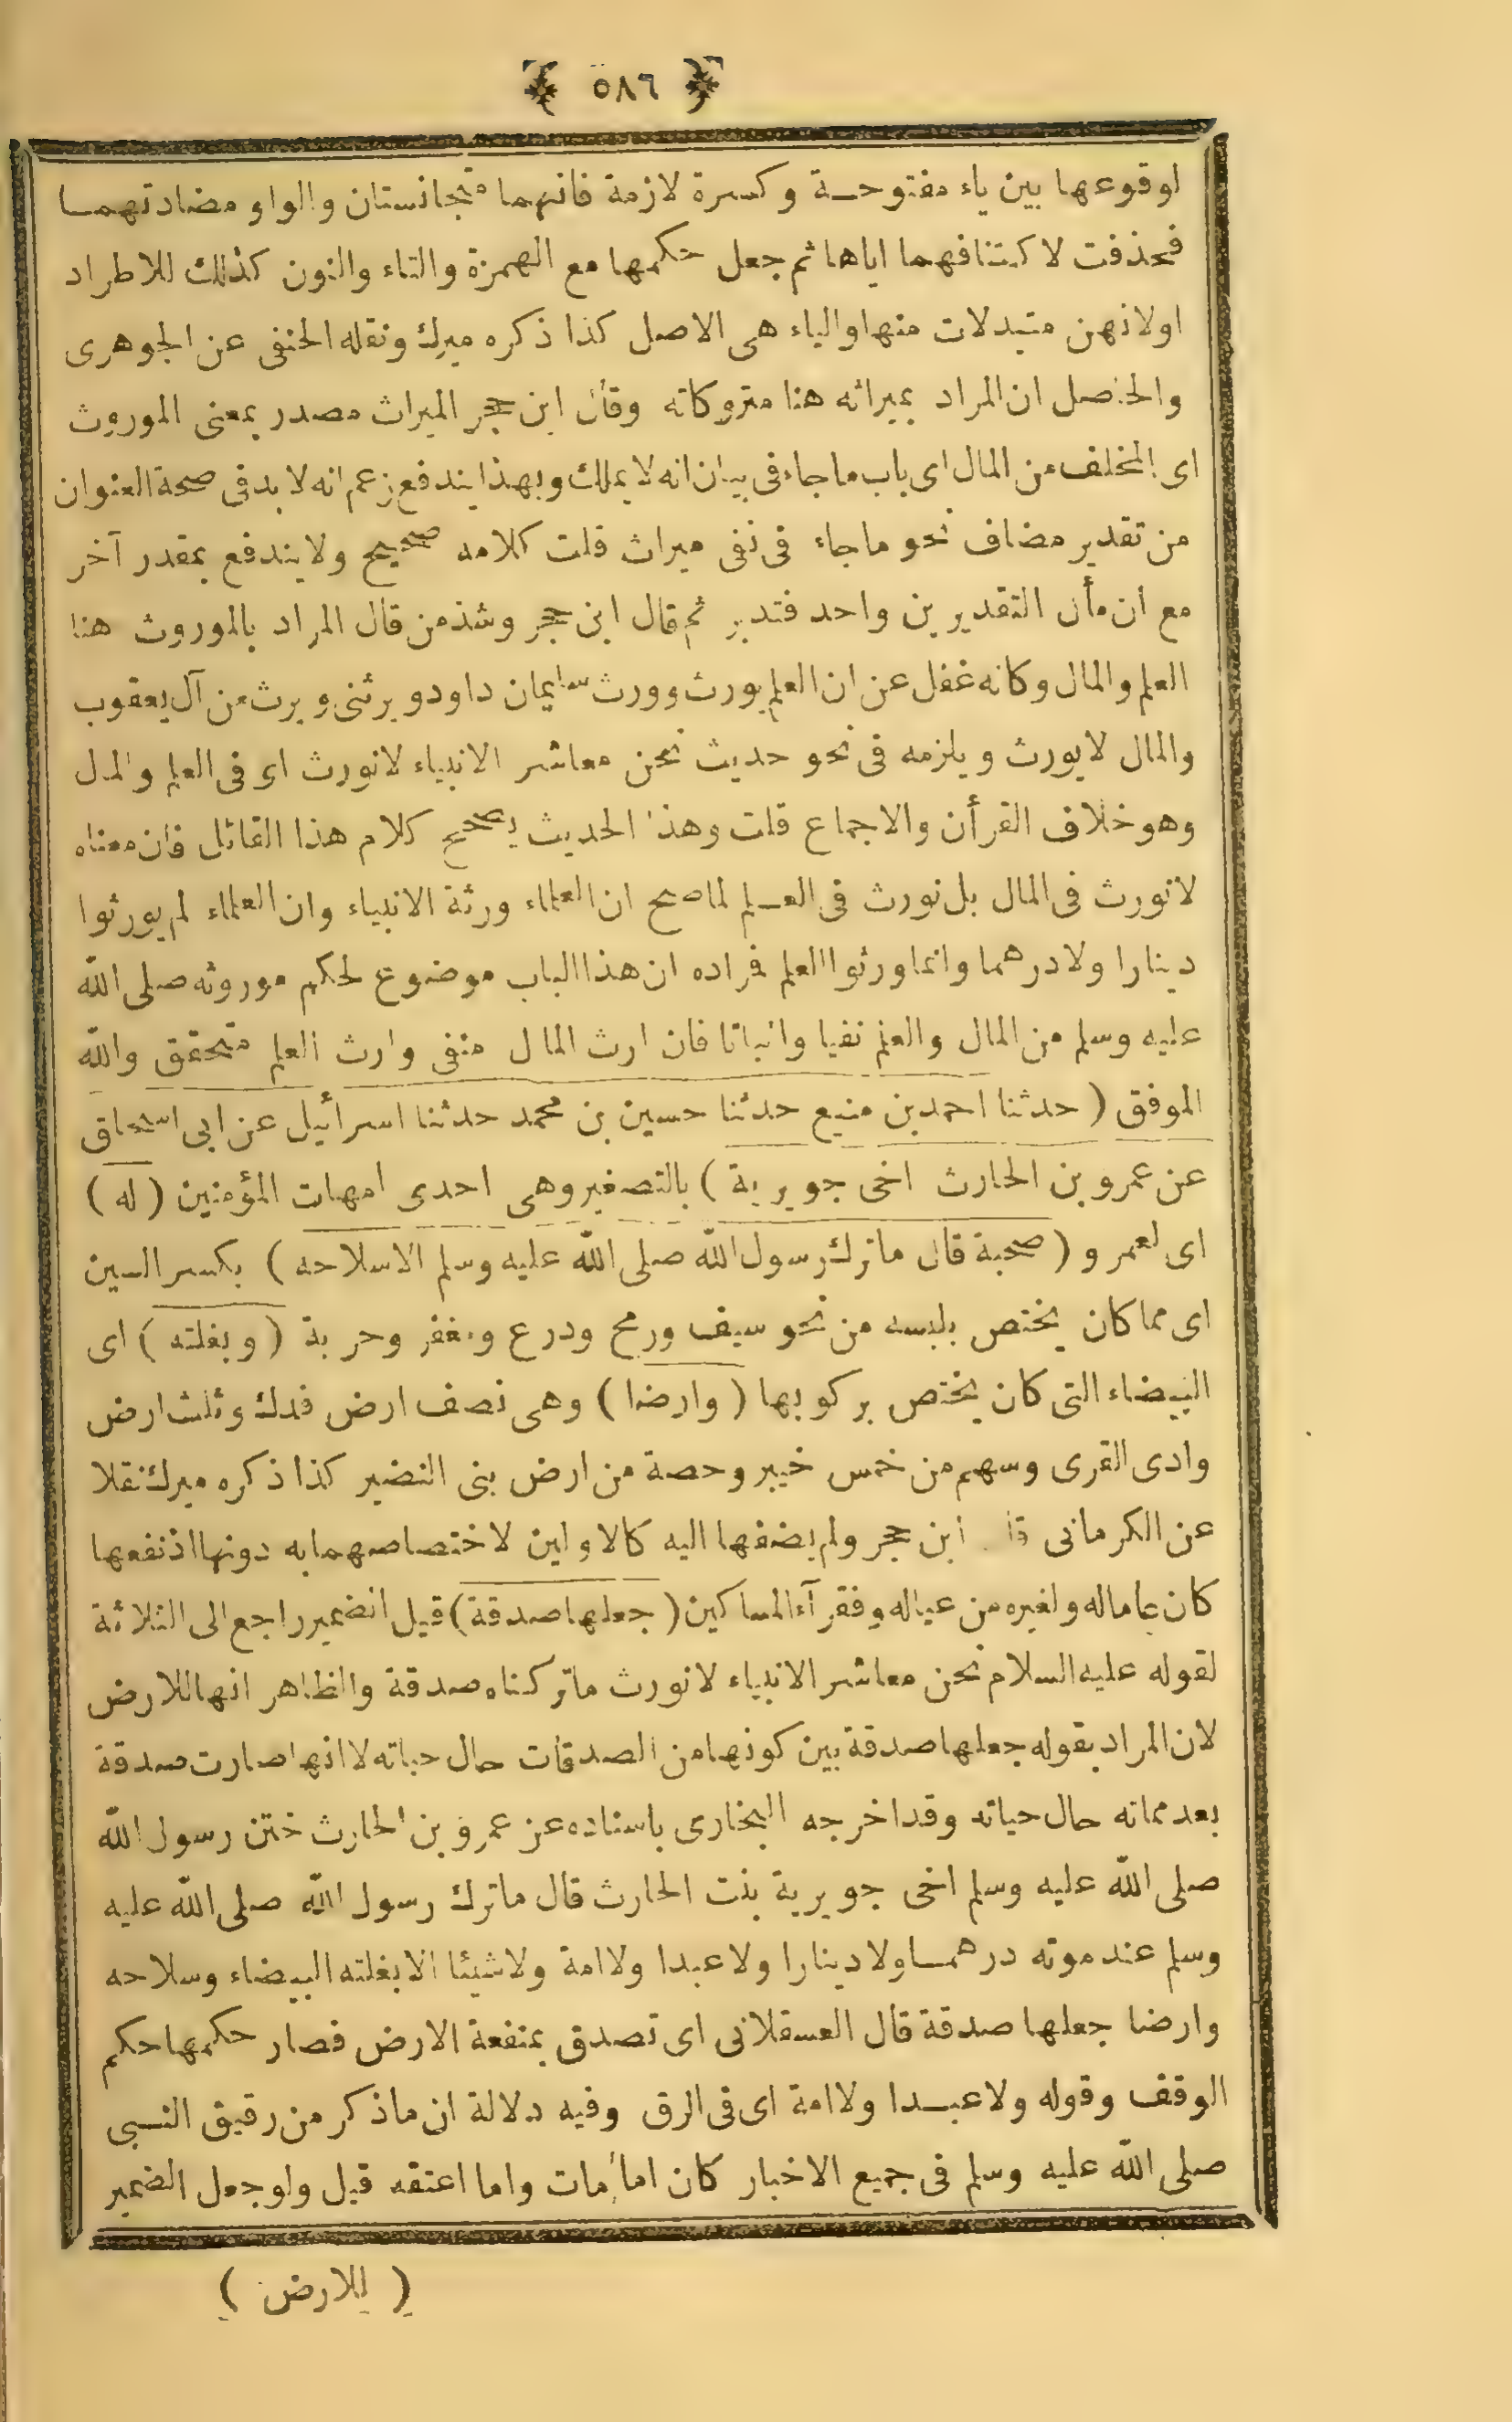 ﴿ ٥٨٦ ﴾
اوقوعها بين ياء مفتوحة وكسرة لازمة فانهما متجانستان والواو مضادتهما
فحذفت لاكتنافهما اياها ثم جعل حكمها مع الهمزة والتاء والنون كذلك للاطراد
اولانهن مبتدلات منها والياء هى الاصل كذا ذكره ميرك ونقله الحنفى عن الجوهرى
والحاصل ان المراد بميراثه هنا متروكاته وقال ابن حجر الميراث مصدر بمعنى الموروث
اى المخلف من المال اى باب ماجاء فى بيان انه لا يملك وبهذا يندفع زعم انه لا بد فى صحة العنوان
من تقدير مضاف نحو ماجاء فى نفى ميراث قلت كلامه صحيح ولا يندفع بمقدر آخر
مع ان مآل التقديرين واحد فتدبر ثم قال ابن حجر وشذ من قال المراد بالموروث هنا
العلم والمال وكانه غفل عن ان العلم يورث وورث سليمان داود ويرثنى ويرث من آل يعقوب
والمال لا يورث ويلزمه فى نحو حديث نحن معاشر الانبياء لانورث اى فى العلم والمال
وهو خلاف القرأن والاجماع قلت وهذا الحديث يصحح كلام هذا القائل فان معناه
لانورث فى المال بل نورث فى العلم لما صح ان العلماء ورثة الانبياء وان العلماء لم يورثوا
دينارا ولا درهما وانما ورثوا العلم فمراده ان هذا الباب موضوع لحكم موروثه صلى الله
عليه وسلم من المال والعلم نفيا واثباتا فان ارث المال منفى وارث العلم متحقق والله
الموفق ( حدثنا احمد بن منيع حدثنا حسين بن محمد حدثنا اسرائيل عن ابى اسحاق
عن عمرو بن الحارث اخى جويرية ) بالتصغير وهى احدى امهات المؤمنين ( له )
اى لعمرو ( صحبة قال ماترك رسول الله صلى الله عليه وسلم الاسلاحه ) بكسر السين
اى مما كان يختص بلبسه من نحو سيف ورمح ودرع ومغفر وحربة ( وبغلته ) اى
البيضاء التى كان يختص بركوبها ( وارضا ) وهى نصف ارض فدك وثلث ارض
وادى القرى وسهم من خمس خيبر وحصة من ارض بنى النضير كذا ذكره ميرك نقلا
عن الكرمانى قال ابن حجر ولم يضفها اليه كالاولين لاختصاصهما به دونها اذ نفعها
كان عاما له ولغيره من عياله وفقرآء المساكين ( جعلها صدقة ) قيل الضمير راجع الى الثلاثة
لقوله عليه السلام نحن معاشر الانبياء لانورث ماتركناه صدقة والظاهر انها للارض
لان المراد بقوله جعلها صدقة بين كونها من الصدقات حال حياته لا انها صارت صدقة
بعد مماته حال حياته وقد اخرجه البخارى باسناده عن عمرو بن الحارث ختن رسول الله
صلى الله عليه وسلم اخى جويرية بنت الحارث قال ماترك رسول الله صلى الله عليه
وسلم عند موته درهما ولا دينارا ولا عبدا ولا امة ولا شيئا الا بغلته البيضاء وسلاحه
وارضا جعلها صدقة قال العسقلانى اى تصدق بمنفعة الارض فصار حكمها حكم
الوقف وقوله ولا عبدا ولا امة اى فى الرق وفيه دلالة ان ماذكر من رقيق النبى
صلى الله عليه وسلم فى جميع الاخبار كان اما مات واما اعتقه قيل ولو جعل الضمير
( للارض )